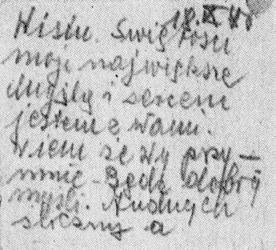 18.X 40
Misiu. Świętości
moje największe
myślą i sercem
jestem z Wami.
wiem że Wy przy
mnie. Będę dobrej
myśli. Nudnych